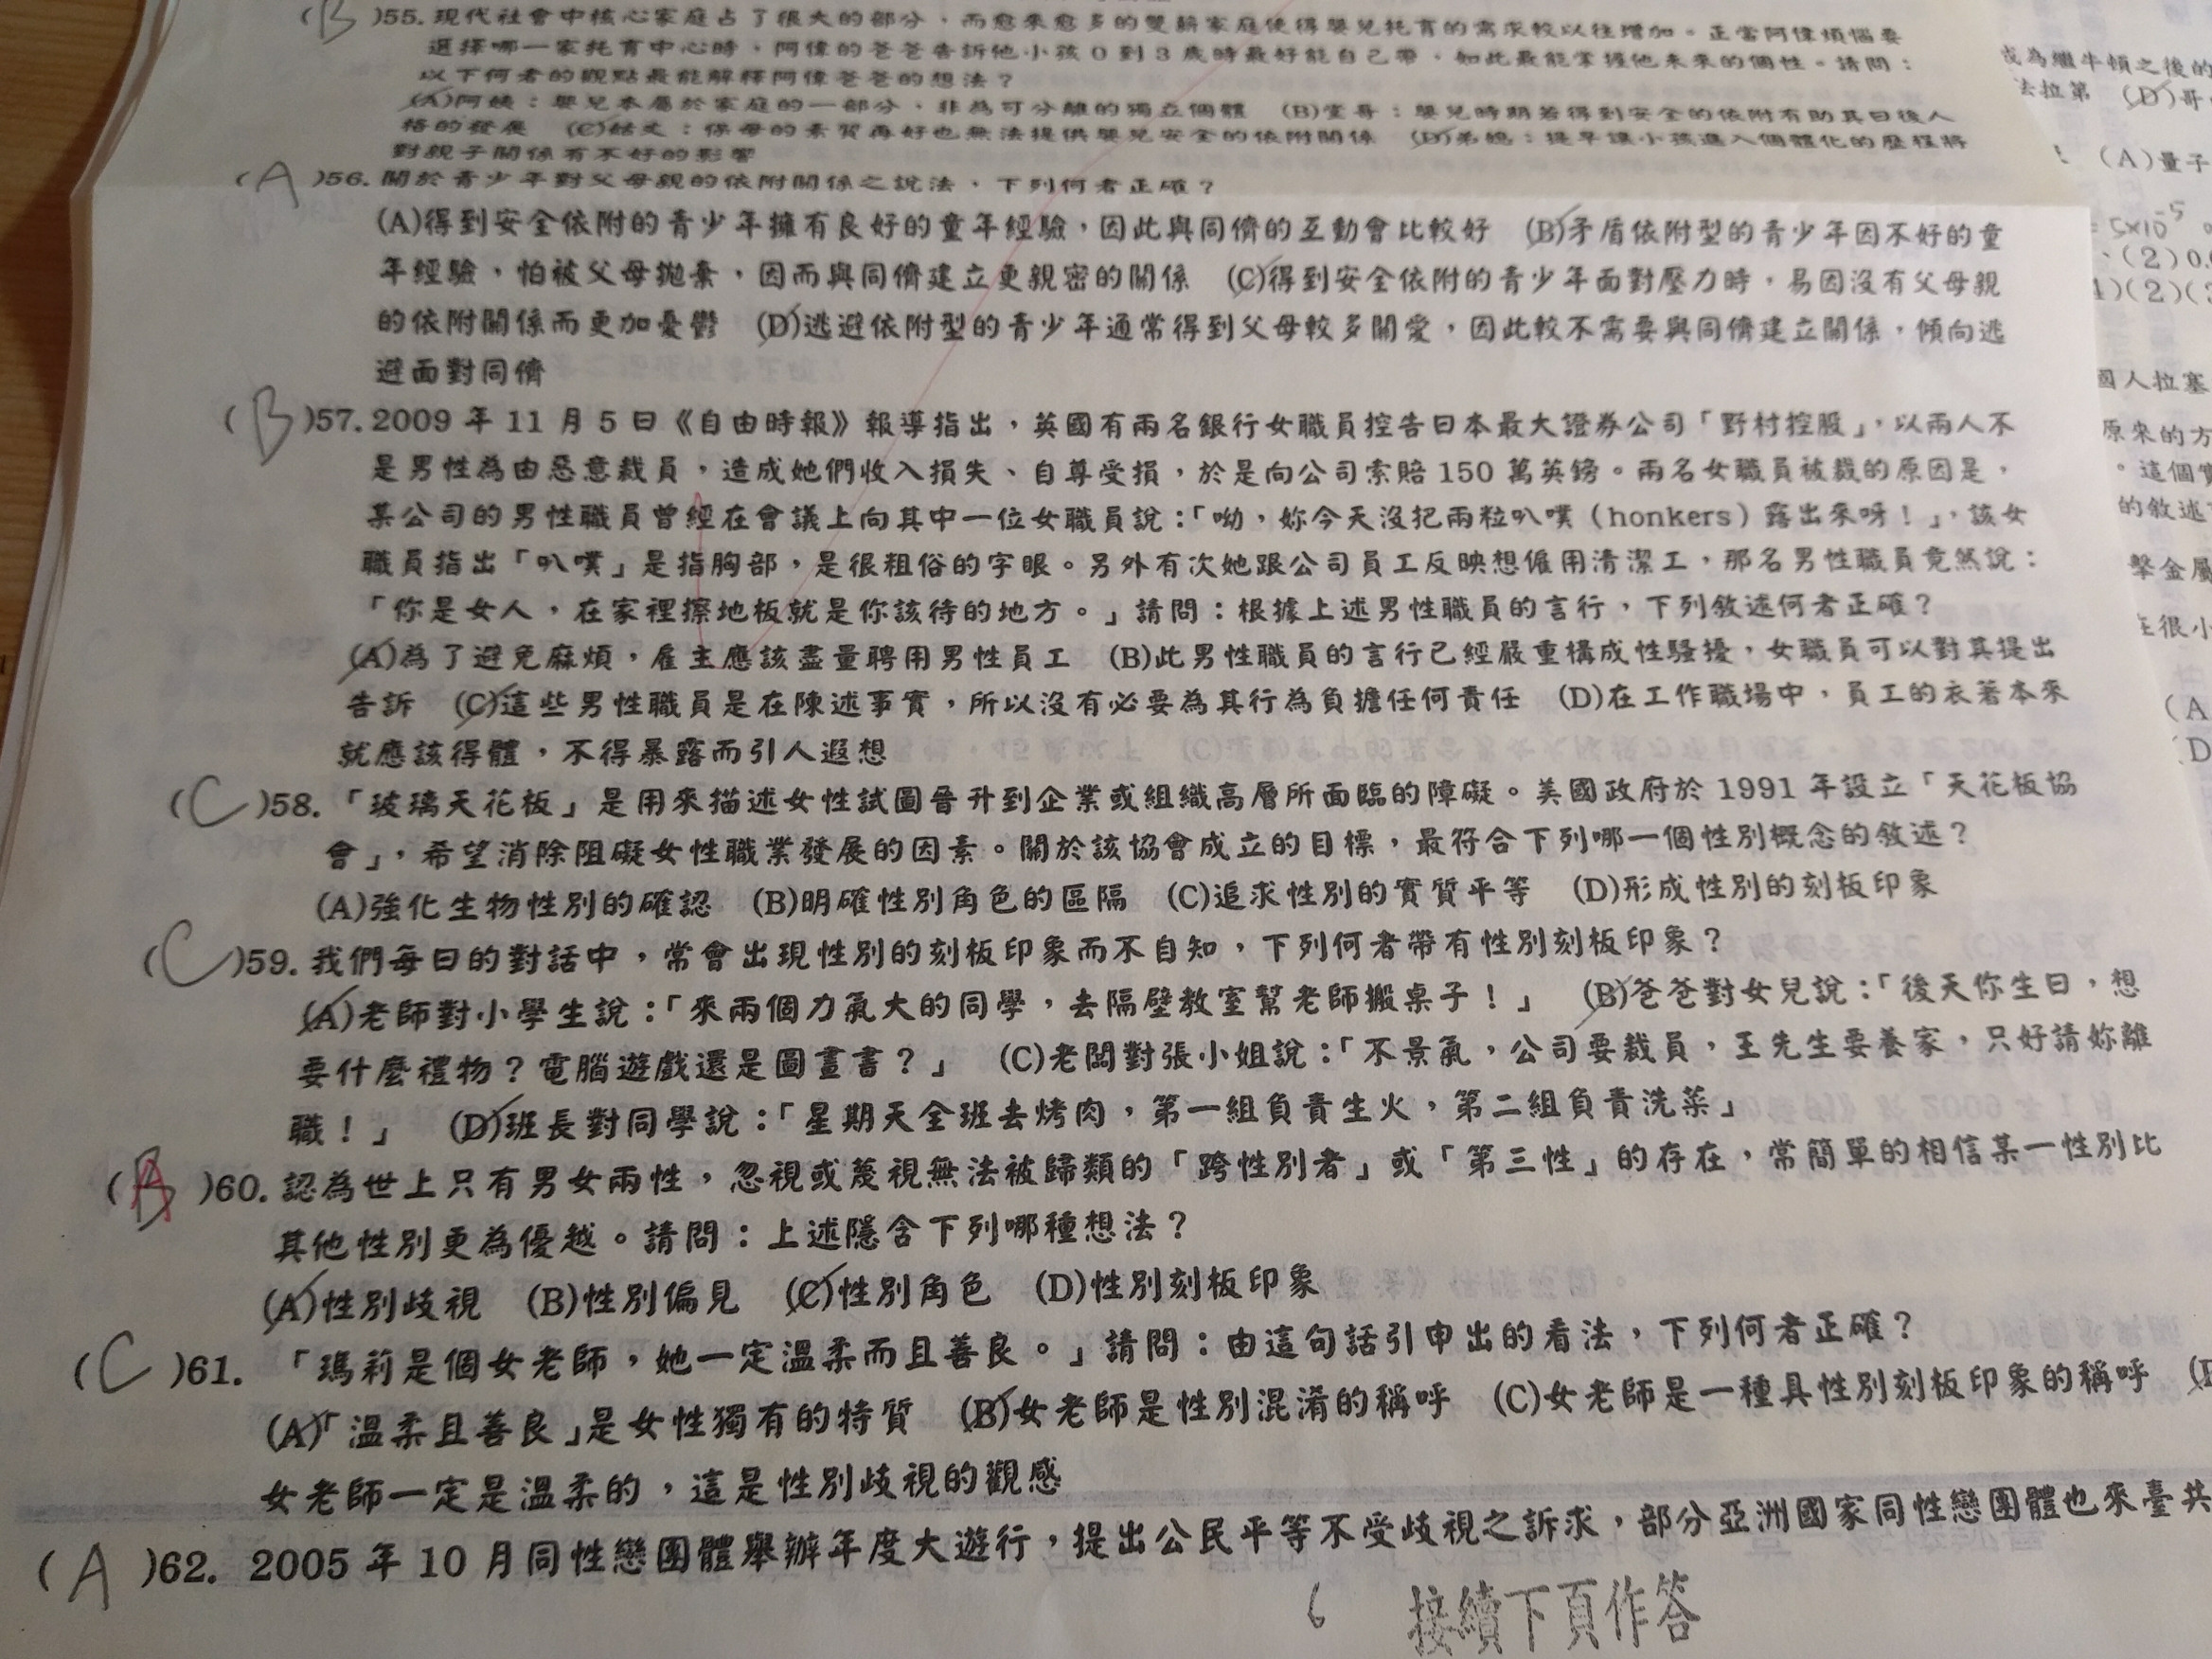 (B)55. 現代社會中核心家庭占了很大的部分，而愈來愈多的雙薪家庭使得嬰兒托育的需求較以往增加。正當阿偉煩惱要
選擇哪一家托育中心時，阿偉的爸爸告訴他小孩0到3歲時最好能自己帶，如此最能掌握他未來的個性。請問：
以下何者的觀點最能解釋阿偉爸爸的想法？
(A)阿姨：嬰兒本屬於家庭的一部分，非為可分離的獨立個體 (B)堂哥：嬰兒時期若得到安全的依附有助其日後人
格的發展 (C)姑丈：保母的素質再好也無法提供嬰兒安全的依附關係 (D)弟媳：提早讓小孩進入個體化的歷程將
對親子關係有不好的影響
(A)56. 關於青少年對父母親的依附關係之說法，下列何者正確？
(A)得到安全依附的青少年擁有良好的童年經驗，因此與同儕的互動會比較好 (B)矛盾依附型的青少年因不好的童
年經驗，怕被父母拋棄，因而與同儕建立更親密的關係 (C)得到安全依附的青少年面對壓力時，易因沒有父母親
的依附關係而更加憂鬱 (D)逃避依附型的青少年通常得到父母較多關愛，因此較不需要與同儕建立關係，傾向逃
避面對同儕
(B)57. 2009 年 11 月 5 日《自由時報》報導指出，英國有兩名銀行女職員控告日本最大證券公司「野村控股」，以兩人不
是男性為由惡意裁員，造成她們收入損失、自尊受損，於是向公司索賠 150 萬英鎊。兩名女職員被裁的原因是，
某公司的男性職員曾經在會議上向其中一位女職員說：「呦，妳今天沒把兩粒叭噗（honkers）露出來呀！」，該女
職員指出「叭噗」是指胸部，是很粗俗的字眼。另外有次她跟公司員工反映想僱用清潔工，那名男性職員竟然說：
「你是女人，在家裡擦地板就是你該待的地方。」請問：根據上述男性職員的言行，下列敘述何者正確？
(A)為了避免麻煩，雇主應該盡量聘用男性員工 (B)此男性職員的言行已經嚴重構成性騷擾，女職員可以對其提出
告訴 (C)這些男性職員是在陳述事實，所以沒有必要為其行為負擔任何責任 (D)在工作職場中，員工的衣著本來
就應該得體，不得暴露而引人遐想
(C)58. 「玻璃天花板」是用來描述女性試圖晉升到企業或組織高層所面臨的障礙。美國政府於 1991 年設立「天花板協
會」，希望消除阻礙女性職業發展的因素。關於該協會成立的目標，最符合下列哪一個性別概念的敘述？
(A)強化生物性別的確認 (B)明確性別角色的區隔 (C)追求性別的實質平等 (D)形成性別的刻板印象
(C)59. 我們每日的對話中，常會出現性別的刻板印象而不自知，下列何者帶有性別刻板印象？
(A)老師對小學生說：「來兩個力氣大的同學，去隔壁教室幫老師搬桌子！」 (B)爸爸對女兒說：「後天你生日，想
要什麼禮物？電腦遊戲還是圖畫書？」 (C)老闆對張小姐說：「不景氣，公司要裁員，王先生要養家，只好請妳離
職！」 (D)班長對同學說：「星期天全班去烤肉，第一組負責生火，第二組負責洗菜」
( )60. 認為世上只有男女兩性，忽視或蔑視無法被歸類的「跨性別者」或「第三性」的存在，常簡單的相信某一性別比
其他性別更為優越。請問：上述隱含下列哪種想法？
(A)性別歧視 (B)性別偏見 (C)性別角色 (D)性別刻板印象
(C)61. 「瑪莉是個女老師，她一定溫柔而且善良。」請問：由這句話引申出的看法，下列何者正確？
(A)「溫柔且善良」是女性獨有的特質 (B)女老師是性別混淆的稱呼 (C)女老師是一種具性別刻板印象的稱呼
女老師一定是溫柔的，這是性別歧視的觀感
(A)62. 2005 年 10 月同性戀團體舉辦年度大遊行，提出公民平等不受歧視之訴求，部分亞洲國家同性戀團體也來臺共
6 接續下頁作答
成為繼牛頓之後的
法拉第 (D)哥
(A)量子
= 5×10⁻⁵
、(2)0.
)(2)(
國人拉塞
原來的方
。這個實
的敘述
擊金屬
在很小
(A
(D